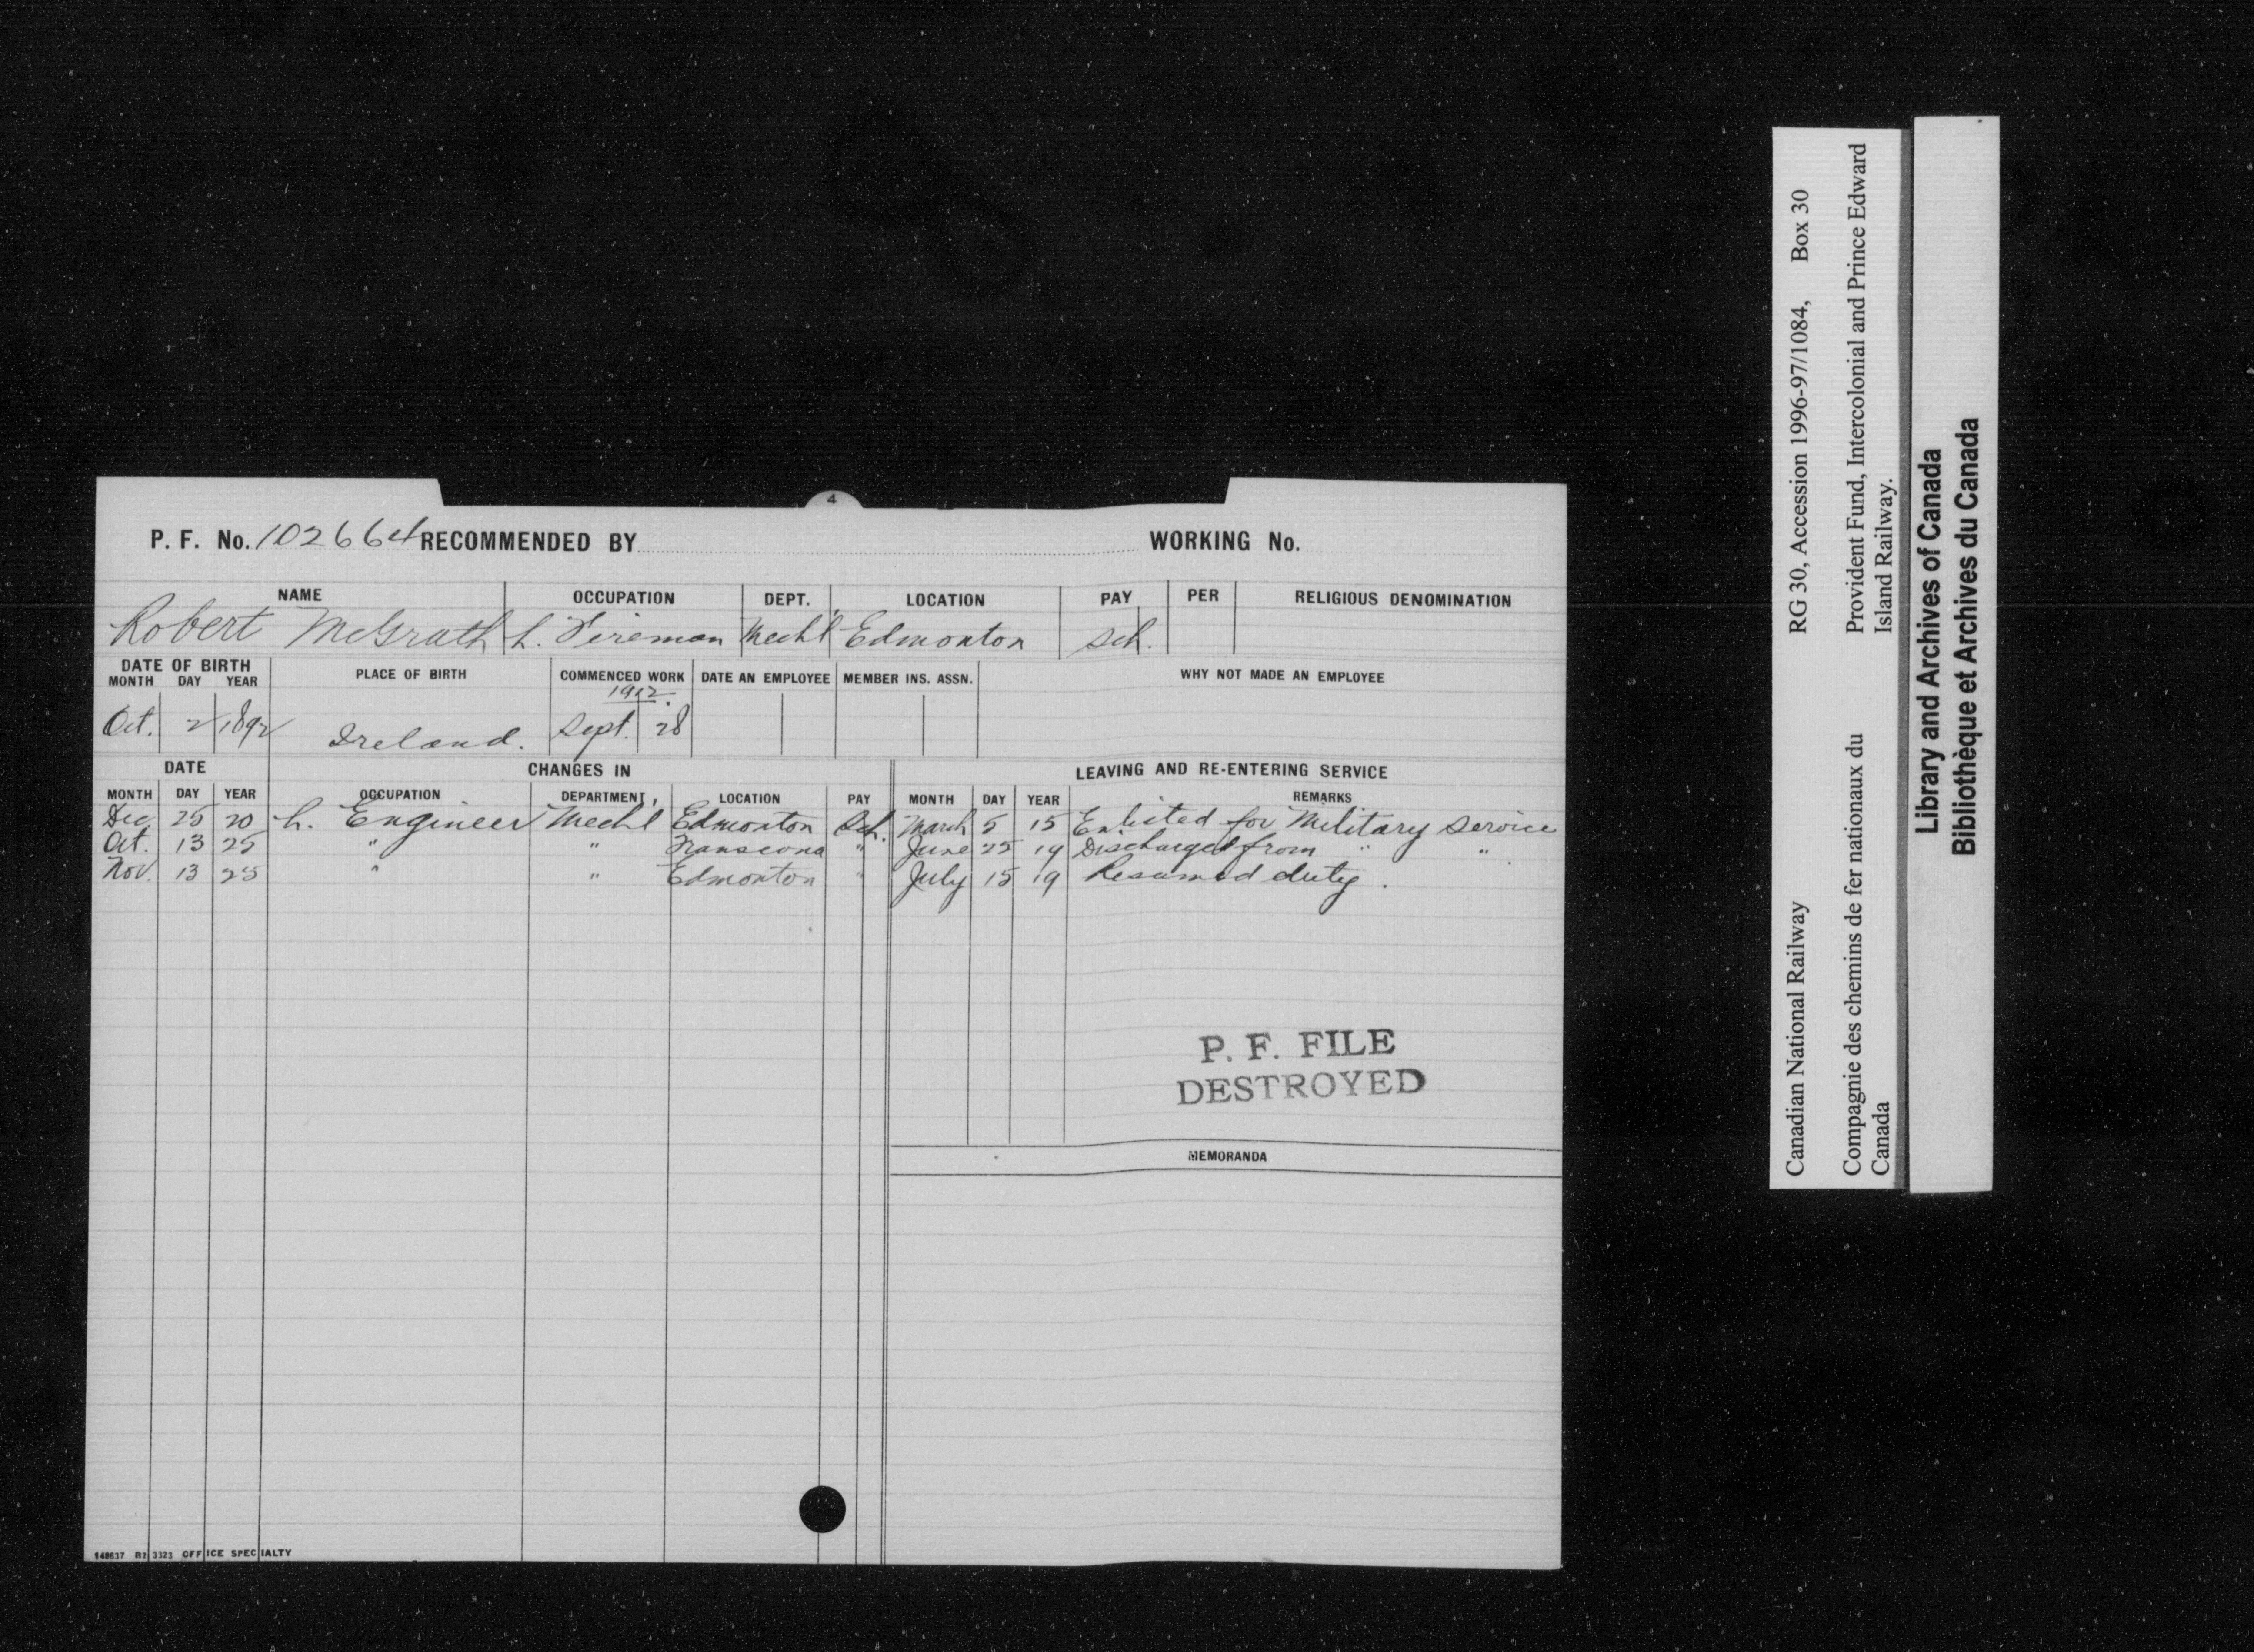 4
P. F. No. 102664 RECOMMENDED BY WORKING No.
NAME OCCUPATION DEPT. LOCATION PAY PER RELIGIOUS DENOMINATION
Robert McGrath L. Fireman Mechl Edmonton Sch.
DATE OF BIRTH PLACE OF BIRTH COMMENCED WORK DATE AN EMPLOYEE MEMBER INS. ASSN. WHY NOT MADE AN EMPLOYEE
MONTH DAY YEAR
1912
Oct. 2 1892 Ireland. Sept. 28
DATE CHANGES IN LEAVING AND RE-ENTERING SERVICE
MONTH DAY YEAR OCCUPATION DEPARTMENT, LOCATION PAY MONTH DAY YEAR REMARKS
Dec 25 20 L. Engineer Mechl Edmonton Sch. March 5 15 Enlisted for Military Service
Oct. 13 25 " " Transcona " June 22 19 Discharged from " "
Nov. 13 25 " " Edmonton " July 15 19 Resumed duty.
P. F. FILE
DESTROYED
MEMORANDA
148637 B1 3323 OFFICE SPECIALTY
Canadian National Railway RG 30, Accession 1996-97/1084, Box 30
Compagnie des chemins de fer nationaux du Provident Fund, Intercolonial and Prince Edward
Canada Island Railway.
Library and Archives of Canada
Bibliothèque et Archives du Canada